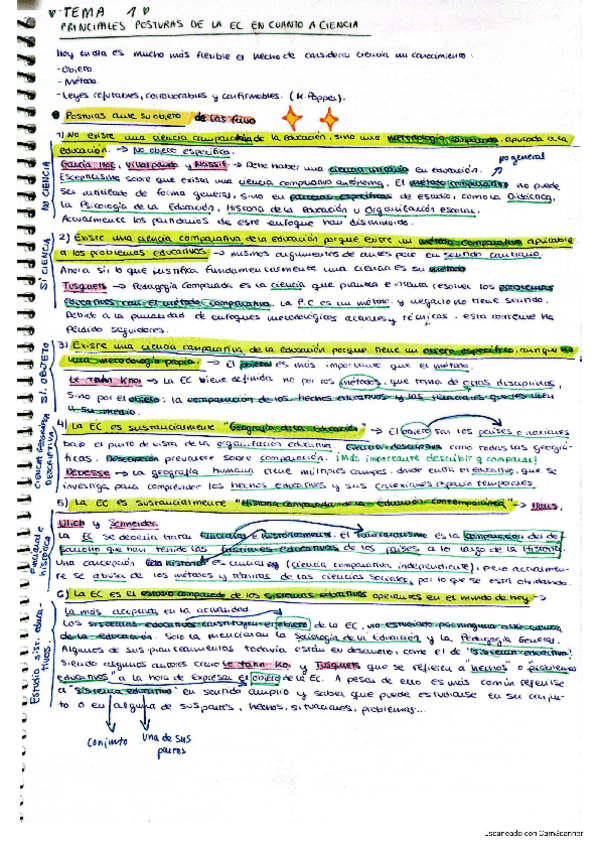 TEMA 1
PRINCIPALES POSTURAS DE LA EC EN CUANTO A CIENCIA
Hoy en día es mucho más flexible el hecho de considerar ciencia un conocimiento:
-Objeto
-Método
-Leyes refutables, corroborables y confirmables. (K. Popper).
Posturas ante su objeto de las
1) No existe una ciencia comparativa de la educación, sino una metodología comparada aplicada a la
educación. → No objeto específico.
no general
García Hoz, Villalpando y Nassif → Debe haber una ciencia unitaria en educación.
Escepticismo sobre que exista una ciencia comparativa autónoma. El método comparativo no puede
ser utilizado de forma general, sino en parcelas específicas de estudio, como la Didáctica,
la Psicología de la Educación, Historia de la Educación u Organización escolar.
Actualmente los partidarios de este enfoque han disminuido.
NO CIENCIA
2) Existe una ciencia comparativa de la educación porque existe un método comparativo aplicable
a los problemas educativos → mismos argumentos de antes pero en sentido contrario.
Ahora sí, lo que justifica fundamentalmente una ciencia es su método
Tusquets → Pedagogía Comparada es la ciencia que plantea e intenta resolver los problemas
educativos con el método comparativo. La P.C es un método, y negarlo no tiene sentido.
Debido a la pluralidad de enfoques metodológicos actuales y técnicas, esta corriente ha
perdido seguidores.
SÍ CIENCIA
3) Existe una ciencia comparativa de la educación porque tiene un objeto específico, aunque no
una metodología propia. → El objeto es más importante que el método.
Le Thành Khoi → La EC viene definida no por los métodos, que toma de otras disciplinas,
sino por el objeto: la comparación de los hechos educativos y las relaciones que los unen
a su medio.
SÍ. OBJETO
4) La EC es sustancialmente "Geografía de la Educación" → El objeto son los países o naciones
bajo el punto de vista de la organización educativa. Ciencia descriptiva como todas las geográ-
ficas. Descripción prevalece sobre comparación. ¡Más importante describir q comparar!
Debesse → La geografía humana tiene múltiples campos, donde entra el educativo, que se
investiga para comprender los hechos educativos y sus conexiones espacio temporales.
CIENCIA GEOGRÁFICA DESCRIPTIVA
5) La EC es sustancialmente "Historia comparada de la Educación contemporánea" → Hans,
Ulich y Schneider.
La EC se debería tratar funcional e históricamente. El funcionalismo es la comparación del de-
sarrollo que han tenido las funciones educativas de los países a lo largo de la Historia.
Una concepción histórica es crucial (ciencia comparativa independiente), pero actualmen-
te se abusa de los métodos y técnicas de las ciencias sociales, por lo que se está olvidando.
Funcional e histórica
6) La EC es el estudio comparado de los sistemas educativos operantes en el mundo de hoy →
La más aceptada en la actualidad.
Los sistemas educativos constituyen el objeto de la EC, no estudiado por ninguna otra ciencia
de la educación. Solo la mencionan la Sociología de la Educación y la Pedagogía General.
Algunos de sus planteamientos todavía están en desarrollo, como el de "sistema educativo".
Siendo algunos autores como Le Thành Khoi y Tusquets que se refieren a "hechos" o "problemas
educativos" a la hora de expresar el objeto de la EC. A pesar de ello es más común referirse
a "sistema educativo" en sentido amplio y saber que puede estudiarse en su conjun-
to o en alguna de sus partes, hechos, situaciones, problemas...
Estudio sist. educativos
conjunto
una de sus
partes
Escaneado con CamScanner